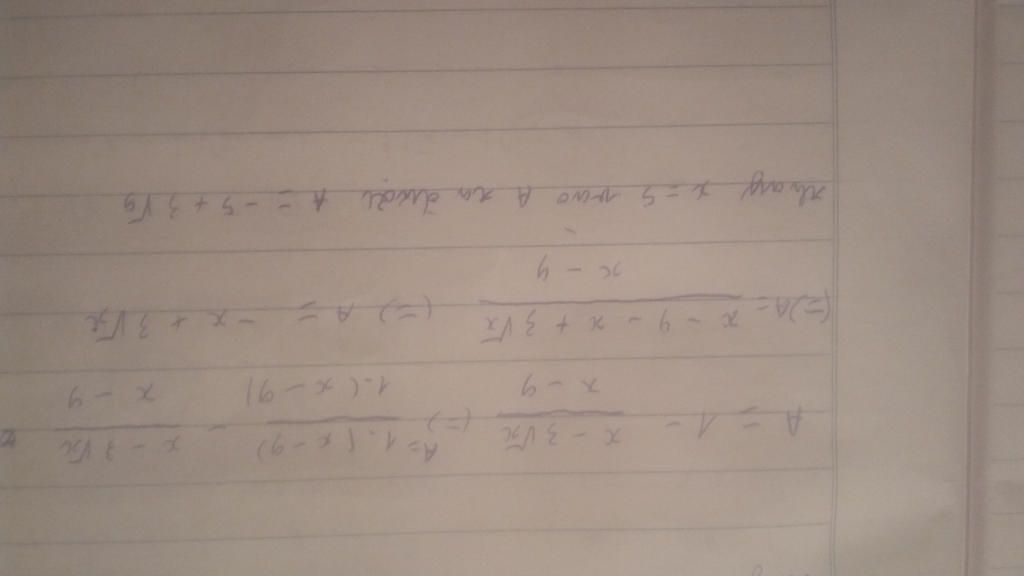 A = 1 - (x - 3√x)/(x - 9) (=) A = 1.(x - 9)/1.(x - 9) - (x - 3√x)/(x - 9)
(=) A = (x - 9 - x + 3√x)/(x - 9) (=) A = - x + 3√x
thay x = 5 vào A ta được A = - 5 + 3√9